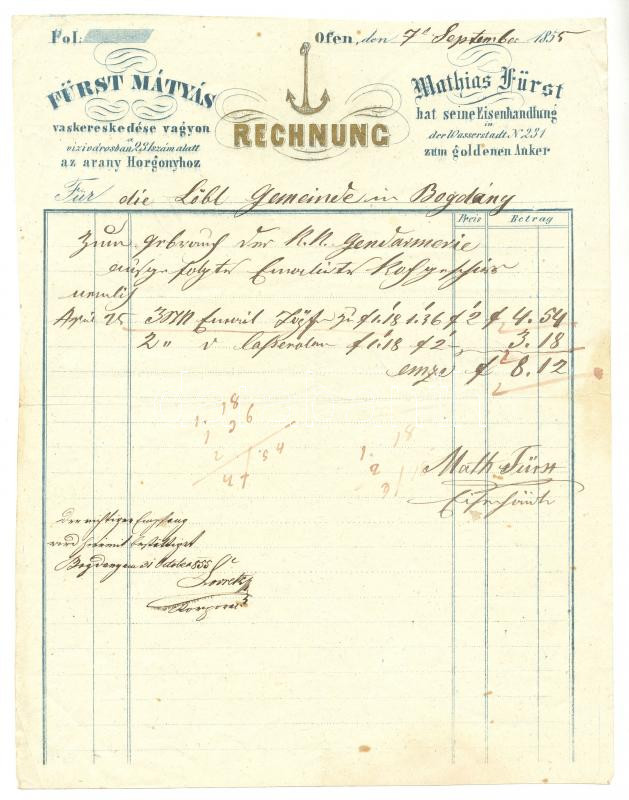 Fol:
Ofen, den 7t September 1855
FÜRST MÁTYÁS
vaskereskedése vagyon
a
vizivárosban 231 szám alatt
az arany Horgonyhoz
RECHNUNG
Mathias Fürst
hat seine Eisenhandlung
in
der Wasserstadt, N. 231
zum goldenen Anker
Für die Löbl Gemeinde in Bogdány
Preis Betrag
Zum gebrauch der K.K. Gendarmerie
ausgefolgte Emailirte Kochgeschirr
nemlich
April 25 3 Email Töpfe zu f 1.18 1.36 f 2 f 4.54
2 " Casserolen f 1.18 f 2 - 3.18
f 8.12
1. 18
1 36
2
4.54
1. 18
2
Math. Fürst
Eisenhändler
Der richtige Empfang
wird hiemit bestättiget
Bogdany am 21 October 855